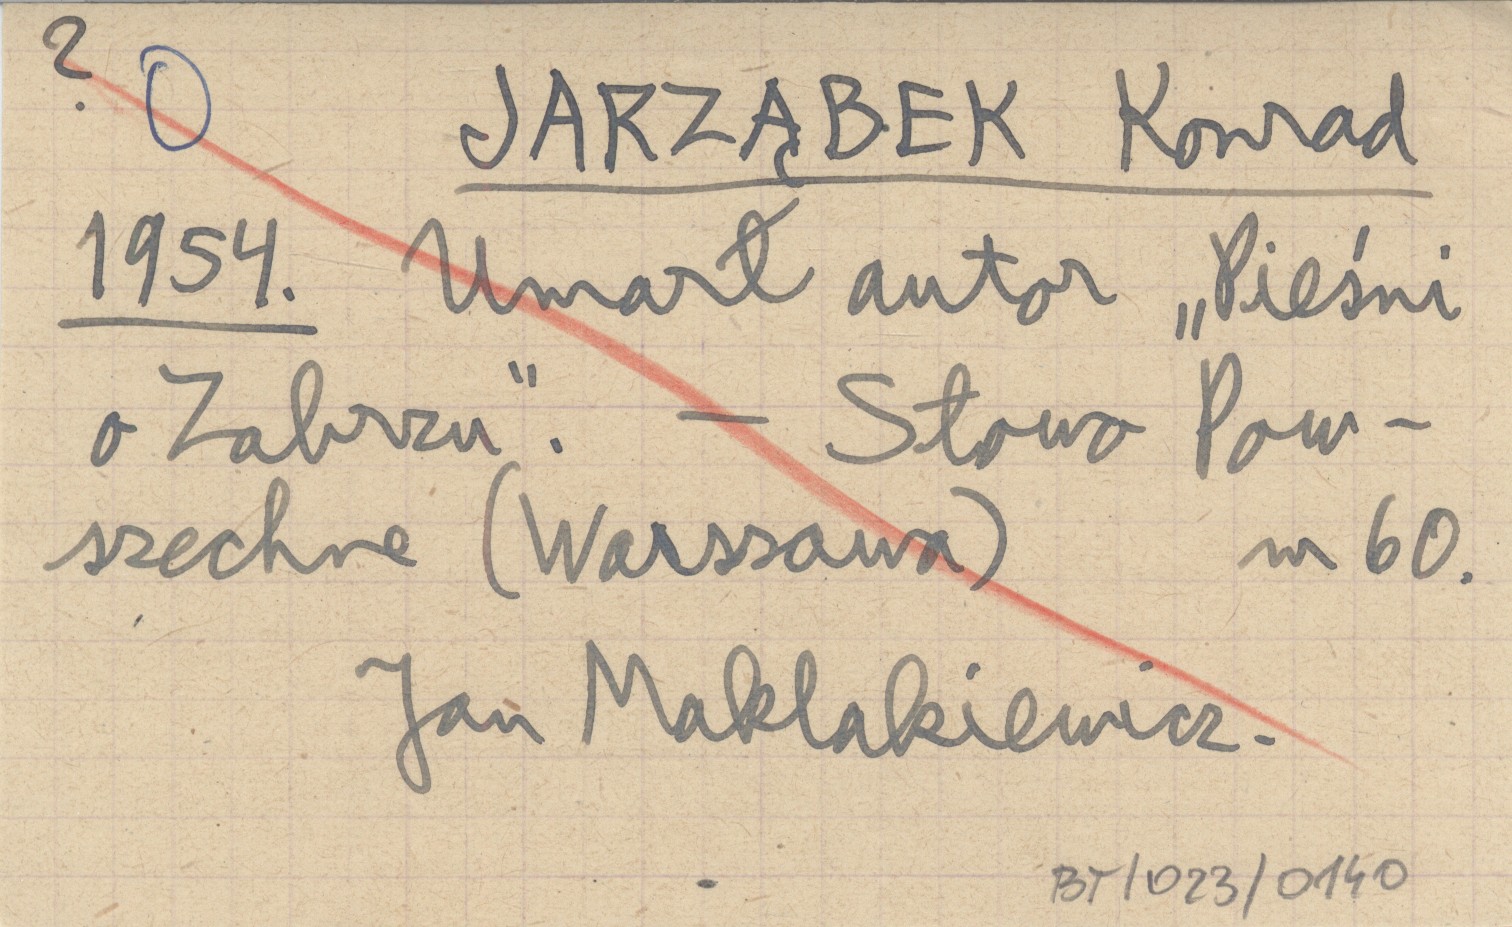 ? O JARZĄBEK Konrad
1954. Umarł autor „Pieśni
o Zabrzu". — Słowo Pow-
szechne (Warszawa) nr 60.
Jan Maklakiewicz.
BT/023/0140